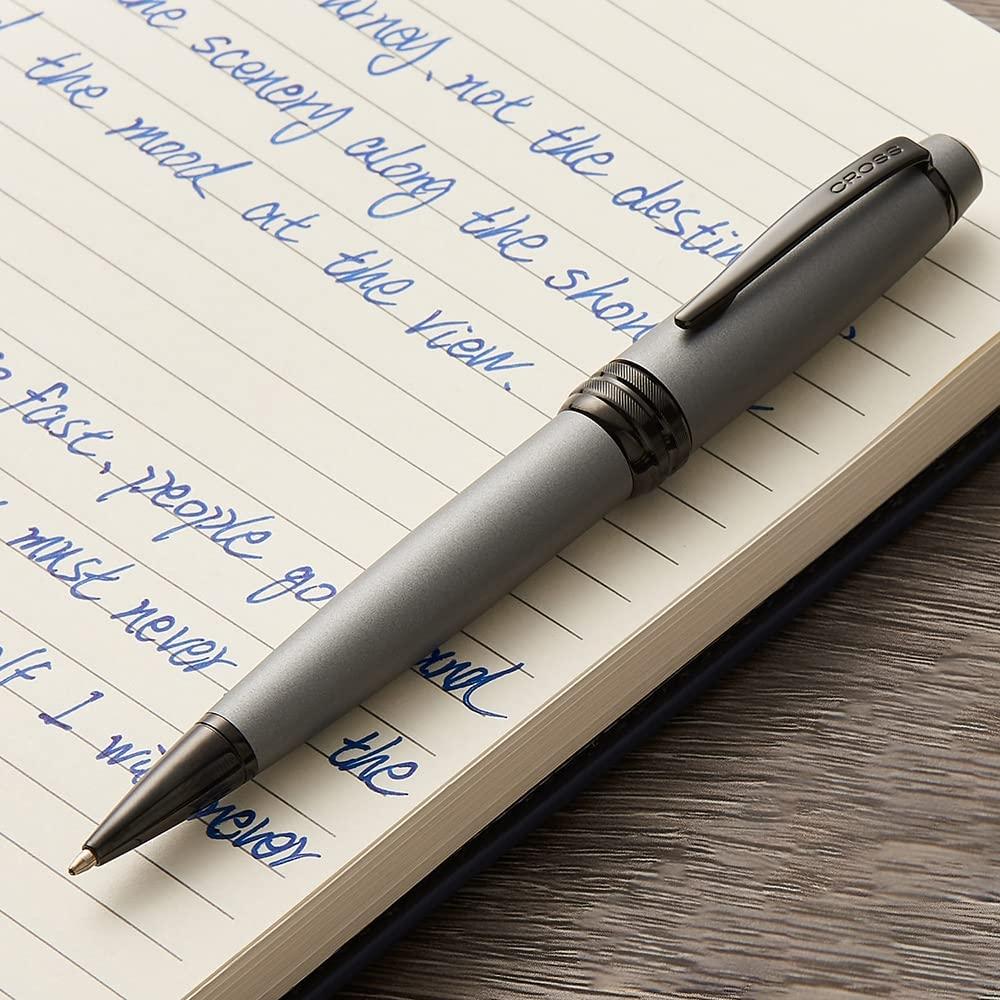 not the
the scenery along the
the mood at the view.
fast, people go and
must never the
I never
CROSS